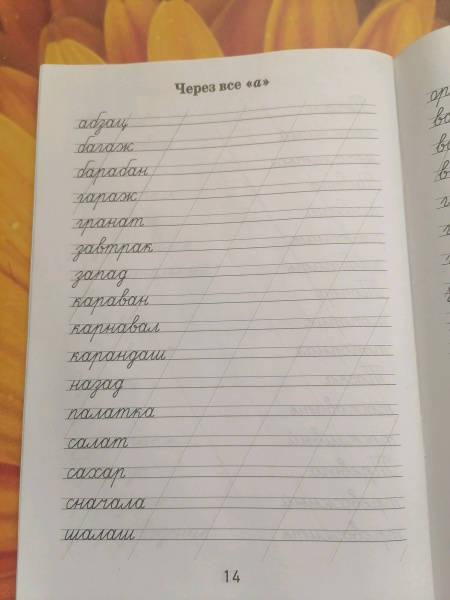 Через все «а»
абзац
багаж
барабан
гараж
гранат
завтрак
запад
караван
карнавал
карандаш
назад
палатка
салат
сахар
сначала
шалаш
14